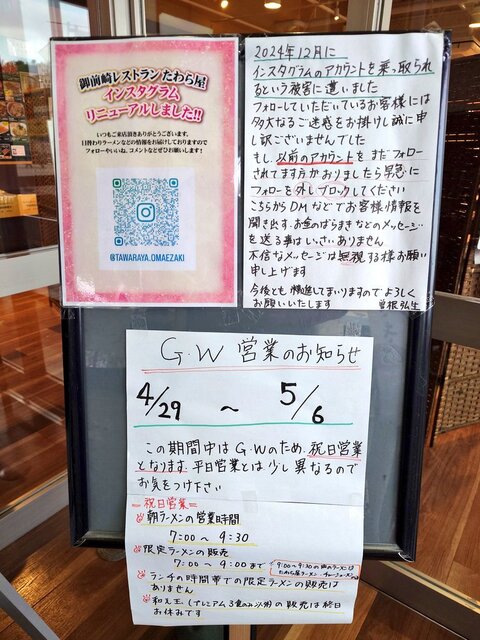 御前崎レストラン たわら屋
インスタグラム
リニューアルしました!!
いつもご来店頂きありがとうございます。
日替わりラーメンなどの情報をお届けしておりますので
フォローやいいね、コメントなどぜひお願いします!
@TAWARAYA.OMAEZAKI
2024年12月に
インスタグラムのアカウントを乗っ取られ
るという被害に遭いました
フォローしていただいているお客様には
多大なるご迷惑をお掛けし誠に申
し訳ございませんでした
もし以前のアカウントをまだフォロー
されてます方がおりましたら早急に
フォローを外しブロックしてください
こちらからDMなどでお客様情報を
聞き出す、お金のばらまきなどのメッセージ
を送る事はいっさいありません
不信なメッセージは無視する様お願い
申し上げます
今後とも精進してまいりますのでよろしく
お願いいたします 曽根弘生
G.W 営業のお知らせ
4/29 ~ 5/6
この期間中はG.Wのため、祝日営業
となります。平日営業とは少し異なるので
お気をつけ下さい
=祝日営業=
朝ラーメンの営業時間
7:00~9:30
限定ラーメンの販売
7:00~9:00まで
9:00~9:30の間のラーメンは
たわら屋ラーメン・チャーシューメンのみ
ランチの時間帯での限定ラーメンの販売は
ありません
和え玉、(プレミアム3食のみ以外)の販売は終日
お休みです